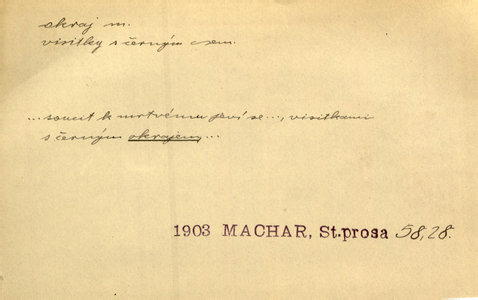 okraj m.
visitky s černým okrajem.
...soucit k mrtvému jeví se..., visitkami
s černým okrajem,...
1903 MACHAR, St.prosa 58,28.